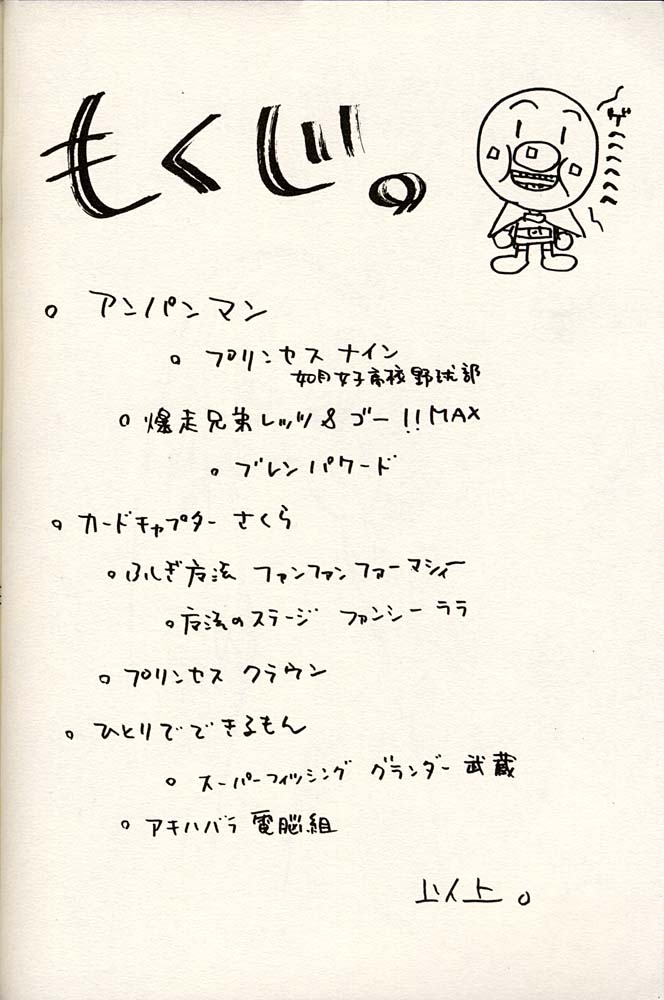 もくじ。
ゲヘヘヘヘヘ
。アンパンマン
。プリンセス ナイン
如月女子高校野球部
。爆走兄弟レッツ&ゴー!!MAX
。ブレンパワード
。カードキャプター さくら
。ふしぎ方法 ファンファンファーマシィー
。方法のステージ ファンシーララ
。プリンセス クラウン
。ひとりでできるもん
。スーパーフィッシング グランダー武蔵
。アキハバラ電脳組
以上。